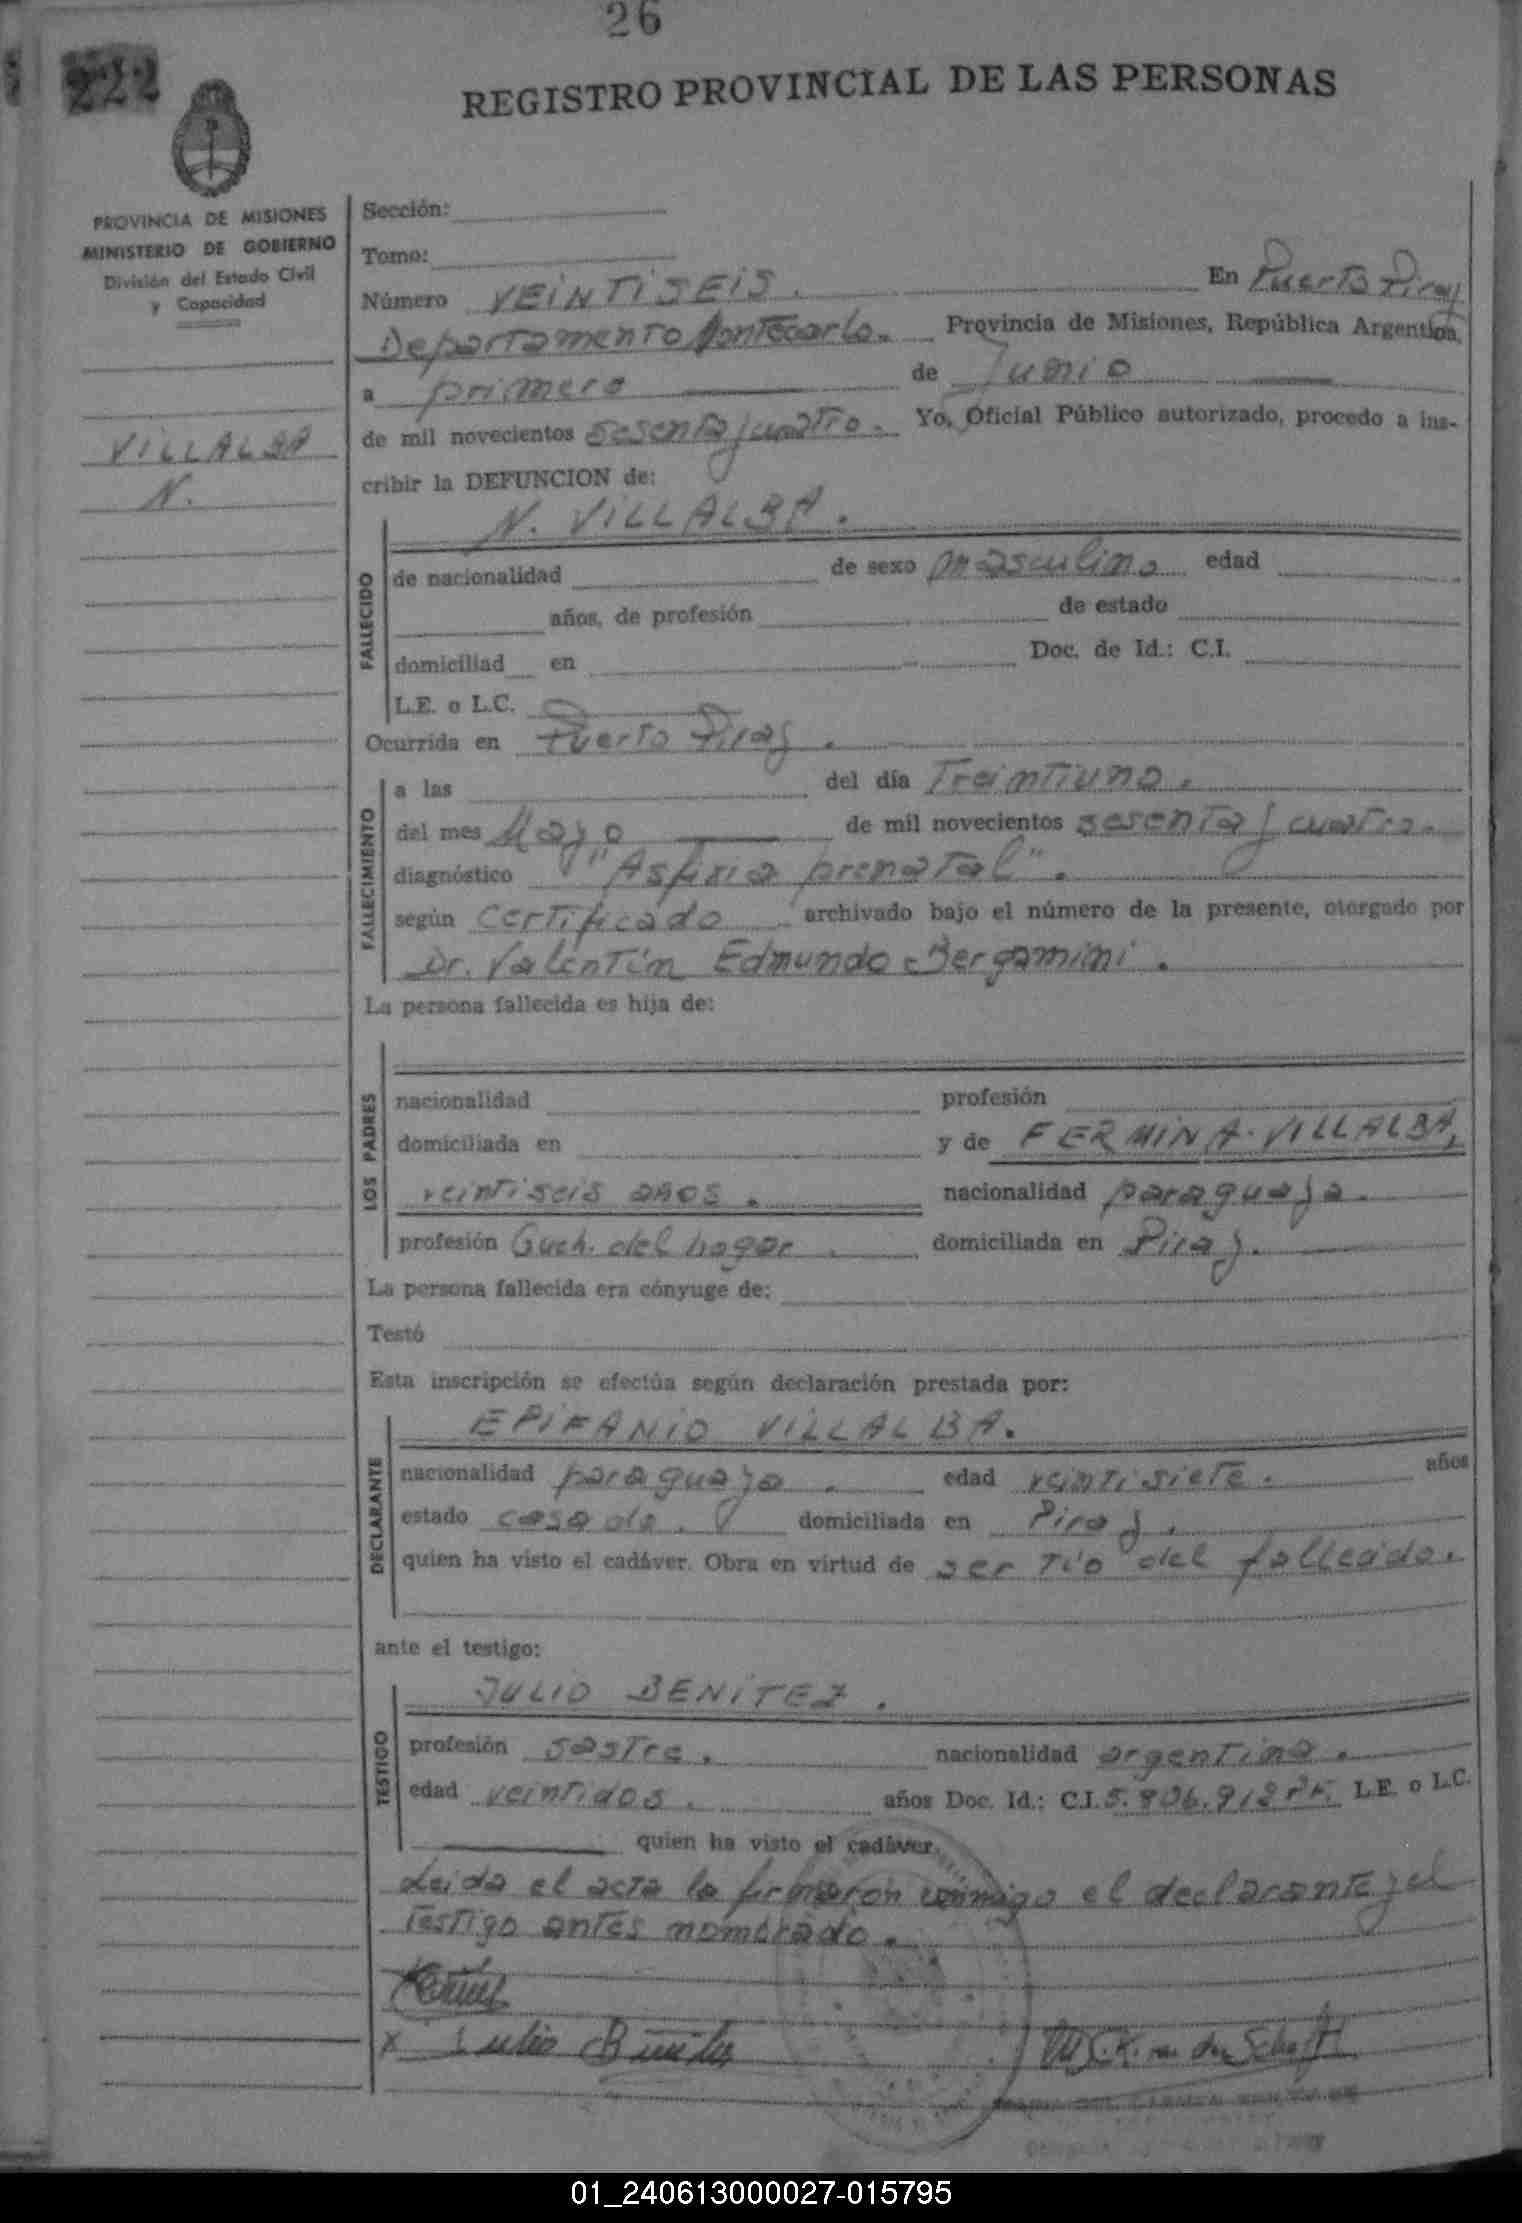 26
222
REGISTRO PROVINCIAL DE LAS PERSONAS
PROVINCIA DE MISIONES
MINISTERIO DE GOBIERNO
División del Estado Civil
y Capacidad
VILLALBA
N.
Sección:
Tomo:
Número VEINTISEIS. En Puerto Piray
Departamento Montecarlo. Provincia de Misiones, República Argentina,
a primero de Junio
de mil novecientos sesenta y cuatro. Yo, Oficial Público autorizado, procedo a ins-
cribir la DEFUNCION de:
N. VILLALBA.
FALLECIDO
de nacionalidad de sexo masculino edad
años, de profesión de estado
domiciliad en Doc. de Id.: C.I.
L.E. o L.C.
Ocurrida en Puerto Piray.
FALLECIMIENTO
a las del día Treintiuno.
del mes Mayo de mil novecientos sesenta y cuatro.
diagnóstico "Asfixia prenatal".
según certificado archivado bajo el número de la presente, otorgado por
Dr. Valentín Edmundo Bergamini.
La persona fallecida es hija de:
LOS PADRES
nacionalidad profesión
domiciliada en y de FERMINA VILLALBA,
veintiseis años. nacionalidad paraguaya.
profesión Queh. del hogar. domiciliada en Piray.
La persona fallecida era cónyuge de:
Testó
Esta inscripción se efectúa según declaración prestada por:
EPIFANIO VILLALBA.
DECLARANTE
nacionalidad paraguaya. edad veintisiete. años
estado casado. domiciliada en Piray.
quien ha visto el cadáver. Obra en virtud de ser tío del fallecido.
ante el testigo:
JULIO BENITEZ.
TESTIGO
profesión sastre. nacionalidad argentina.
edad veintidos. años Doc. Id.: C.I. L.E. o L.C.
quien ha visto el cadáver.
Leida el acta la firmaron conmigo el declarante y el
testigo antes nombrado.
x Julio Benitez
01_240613000027-015795